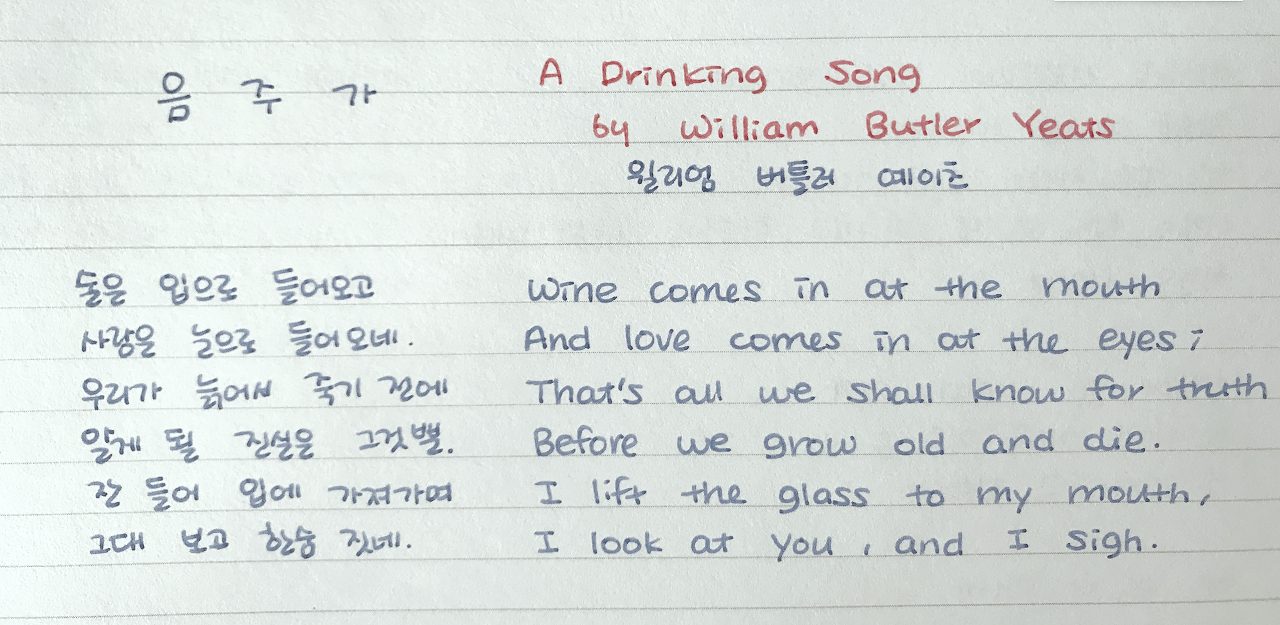 음 주 가
A Drinking Song
by William Butler Yeats
윌리엄 버틀러 예이츠
술은 입으로 들어오고
사랑은 눈으로 들어오네.
우리가 늙어서 죽기 전에
알게 될 진실은 그것뿐.
잔 들어 입에 가져가며
그대 보고 한숨 짓네.
Wine comes in at the mouth
And love comes in at the eyes;
That's all we shall know for truth
Before we grow old and die.
I lift the glass to my mouth,
I look at you, and I sigh.